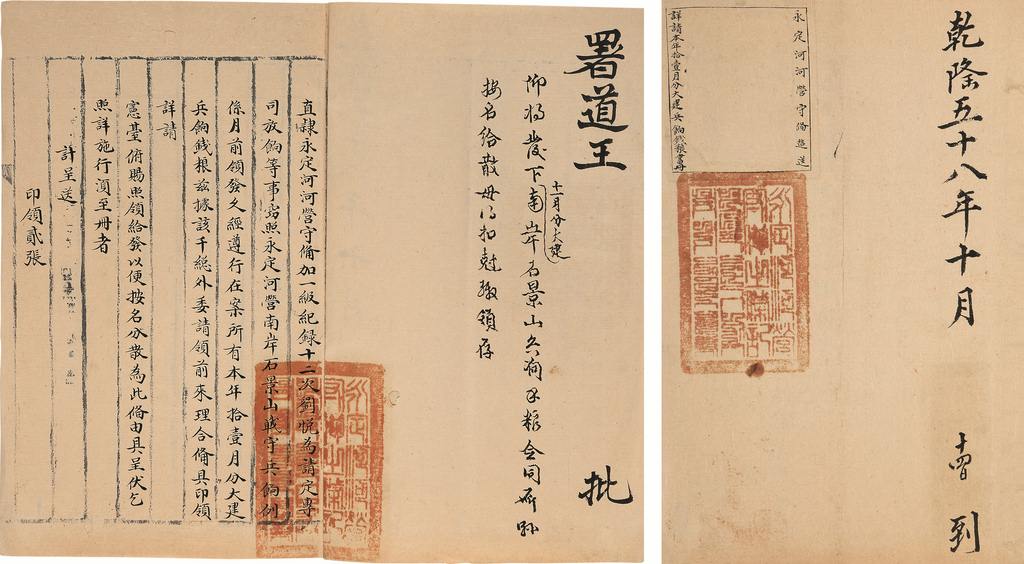 乾隆五十八年十月
十一日 到
永定河河營守備造送
詳請本年拾壹月分大建兵餉錢糧書冊
署道王 批
仰將發下南岸石景山兵餉
十一月分大建
按名給散毋得扣尅繳領存
直隷永定河河營守俻加一級紀録十二次劉悅為請定專
司放餉等事竊照永定河營南岸石景山戰守兵餉例
係月前領發久經遵行在案所有本年拾壹月分大建
兵餉銭粮兹據該千總外委請領前來理合俻具印領
詳請
憲臺俯賜照領給發以便按名分散為此俻由具呈伏乞
照詳施行須至冊者
計呈送
印領貳張